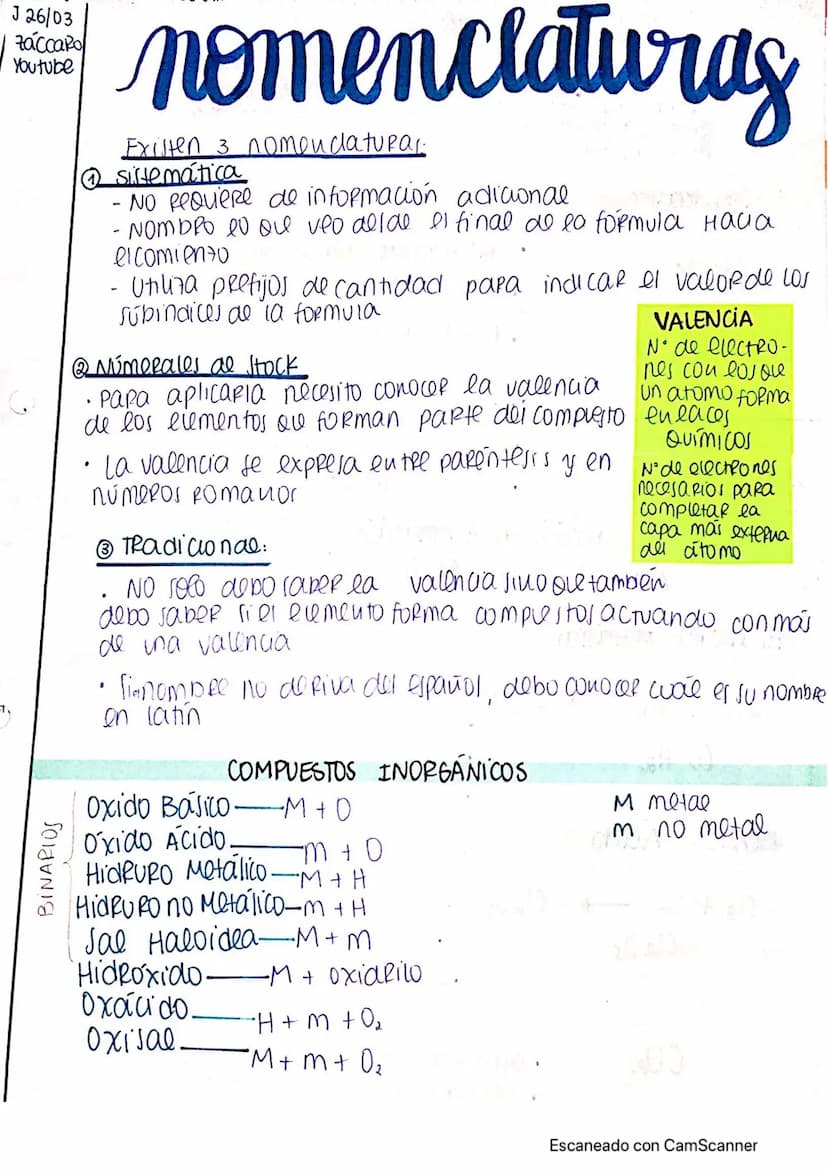 J 26/03
záccaro
Youtube
nomenclaturas
Existen 3 nomenclaturas.
① sistemática
- No requiere de información adicional
- Nombro lo que veo desde el final de la fórmula hacia
el comienzo
- Utiliza prefijos de cantidad para indicar el valor de los
súbindices de la formula
VALENCIA
N° de electro-
nes con los que
un atomo forma
enlaces
químicos
N° de electrones
necesarios para
completar la
capa más externa
del átomo
② Númerales de Stock
· Para aplicarla necesito conocer la valencia
de los elementos que forman parte del compuesto
· La valencia se expresa entre paréntesis y en
números romanos
③ Tradicional:
· No solo debo saber la valencia sino que también
debo saber si el elemento forma compuestos actuando con más
de una valencia
· Si nombre no deriva del español, debo conocer cuál es su nombre
en latín
COMPUESTOS INORGÁNICOS
BINARIOS
Oxido Básico — M + O
Óxido Ácido — m + O
Hidruro Metálico — M + H
Hidruro no Metálico — m + H
Sal Haloidea — M + m
Hidróxido — M + oxidrilo
Oxácido — H + m + O₂
Oxisal — M + m + O₂
M metal
m no metal
Escaneado con CamScanner